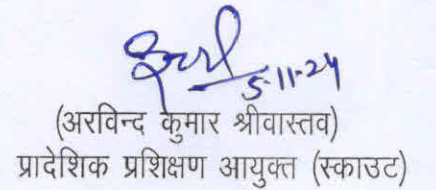 5-11-24
(अरविन्द कुमार श्रीवास्तव)
प्रादेशिक प्रशिक्षण आयुक्त (स्काउट)